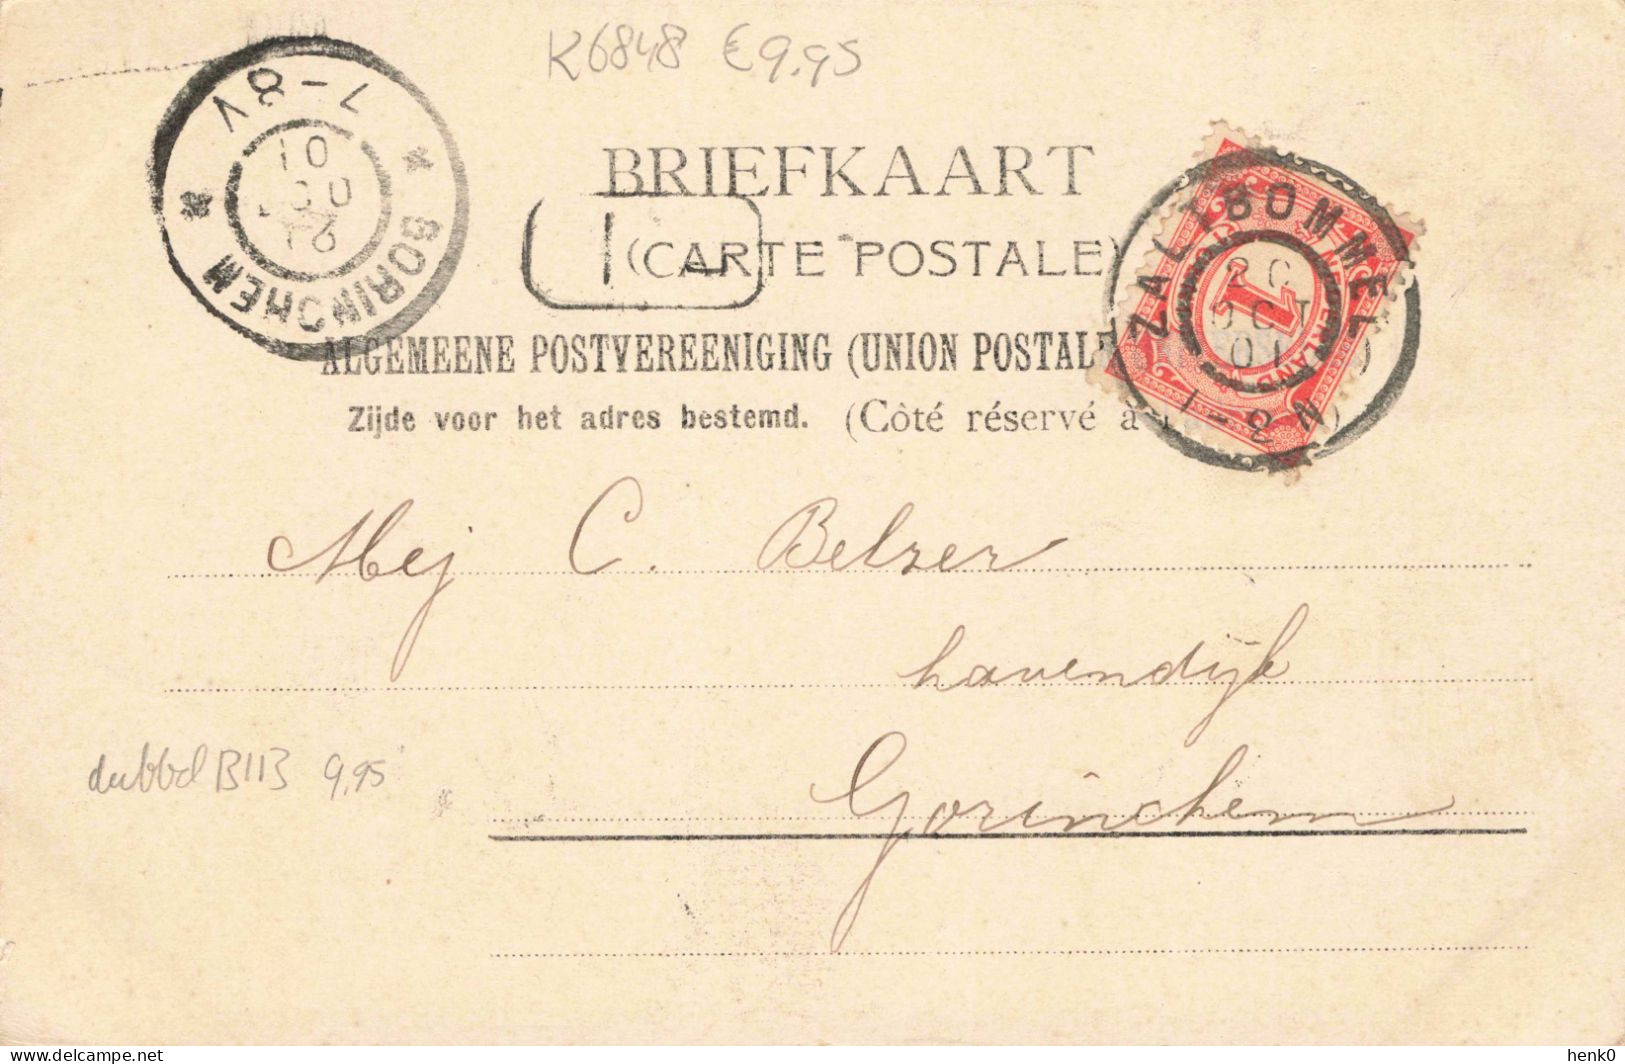 K6848 €9.95
7-8V
GORINCHEM
BRIEFKAART
(CARTE POSTALE)
ALGEMEENE POSTVEREENIGING (UNION POSTALE
Zijde voor het adres bestemd. (Côté réservé à
ZALTBOMMEL
OCT
01
1-2N
NEDERLAND
1
Mej C. Belzer
havendijk
Gorinchem
dubbel B11B 9,95
delcampe.net
henk0